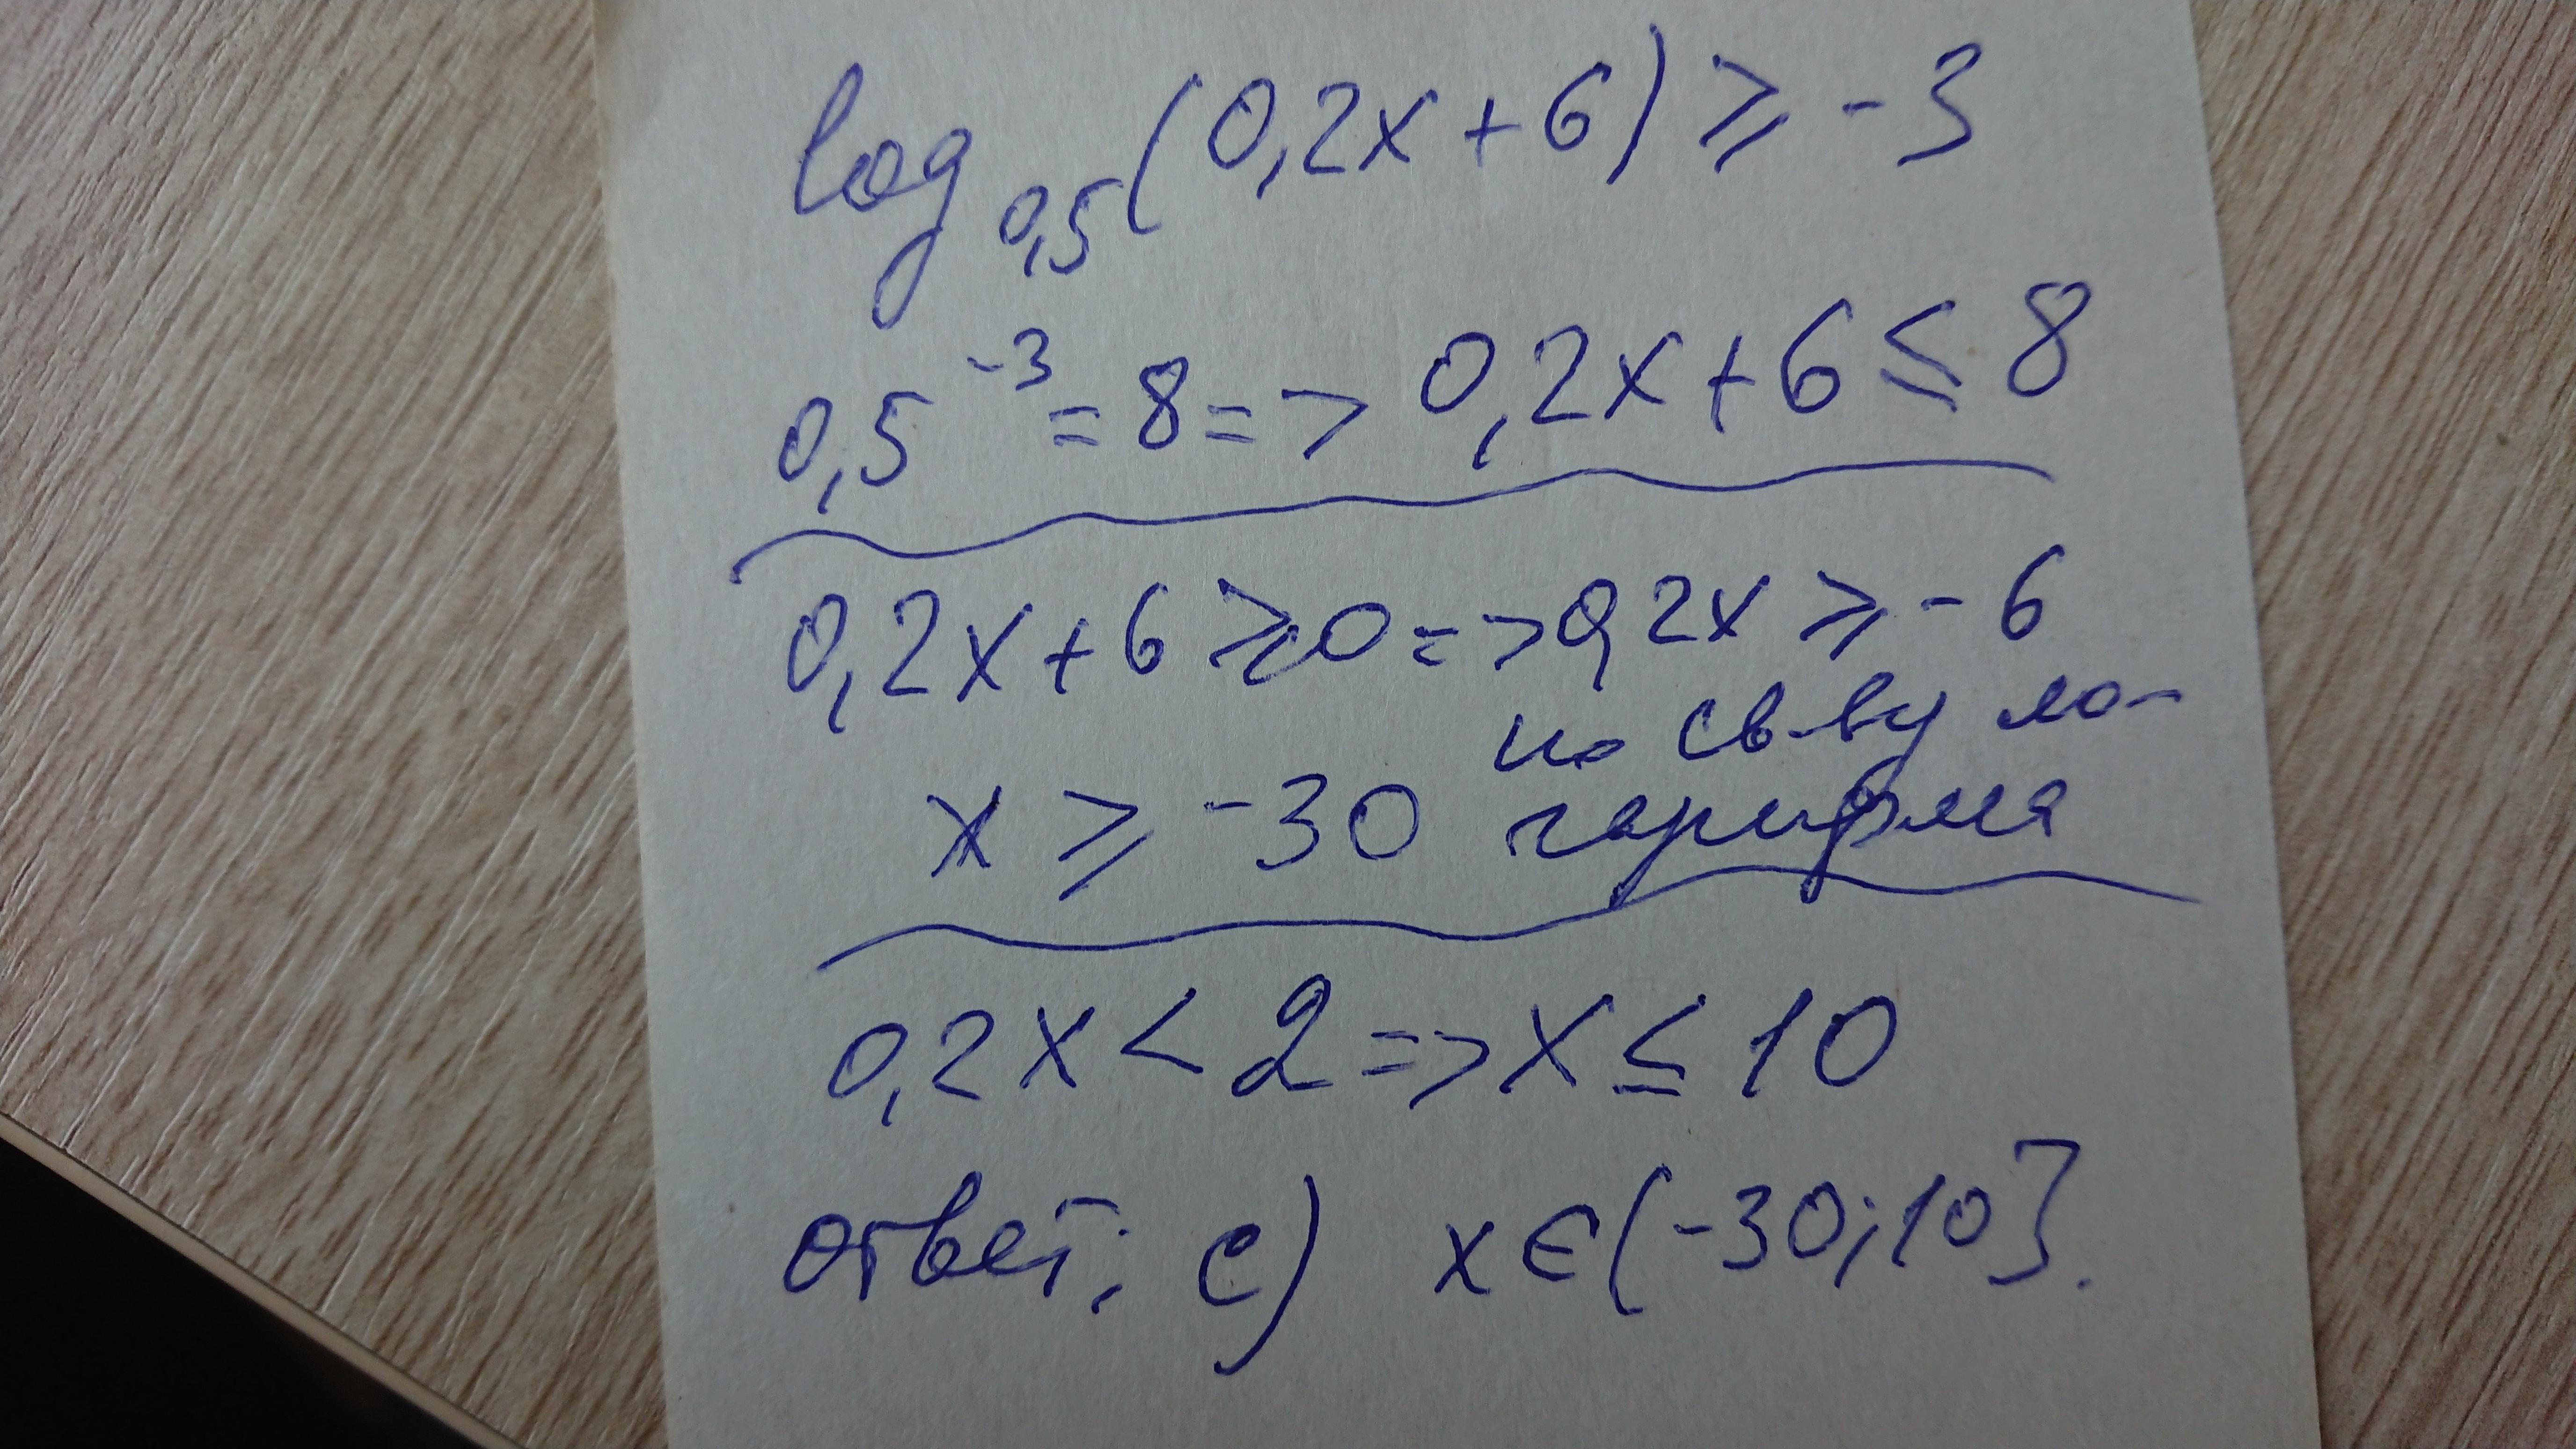 log 0,5 (0,2x+6) ≥ -3
0,5⁻³ = 8 => 0,2x+6 ≤ 8
0,2x+6 ≥ 0 => 0,2x ≥ -6
по св-ву ло-
x ≥ -30 гарифма
0,2x < 2 => x ≤ 10
ответ: c) x∈(-30;10].